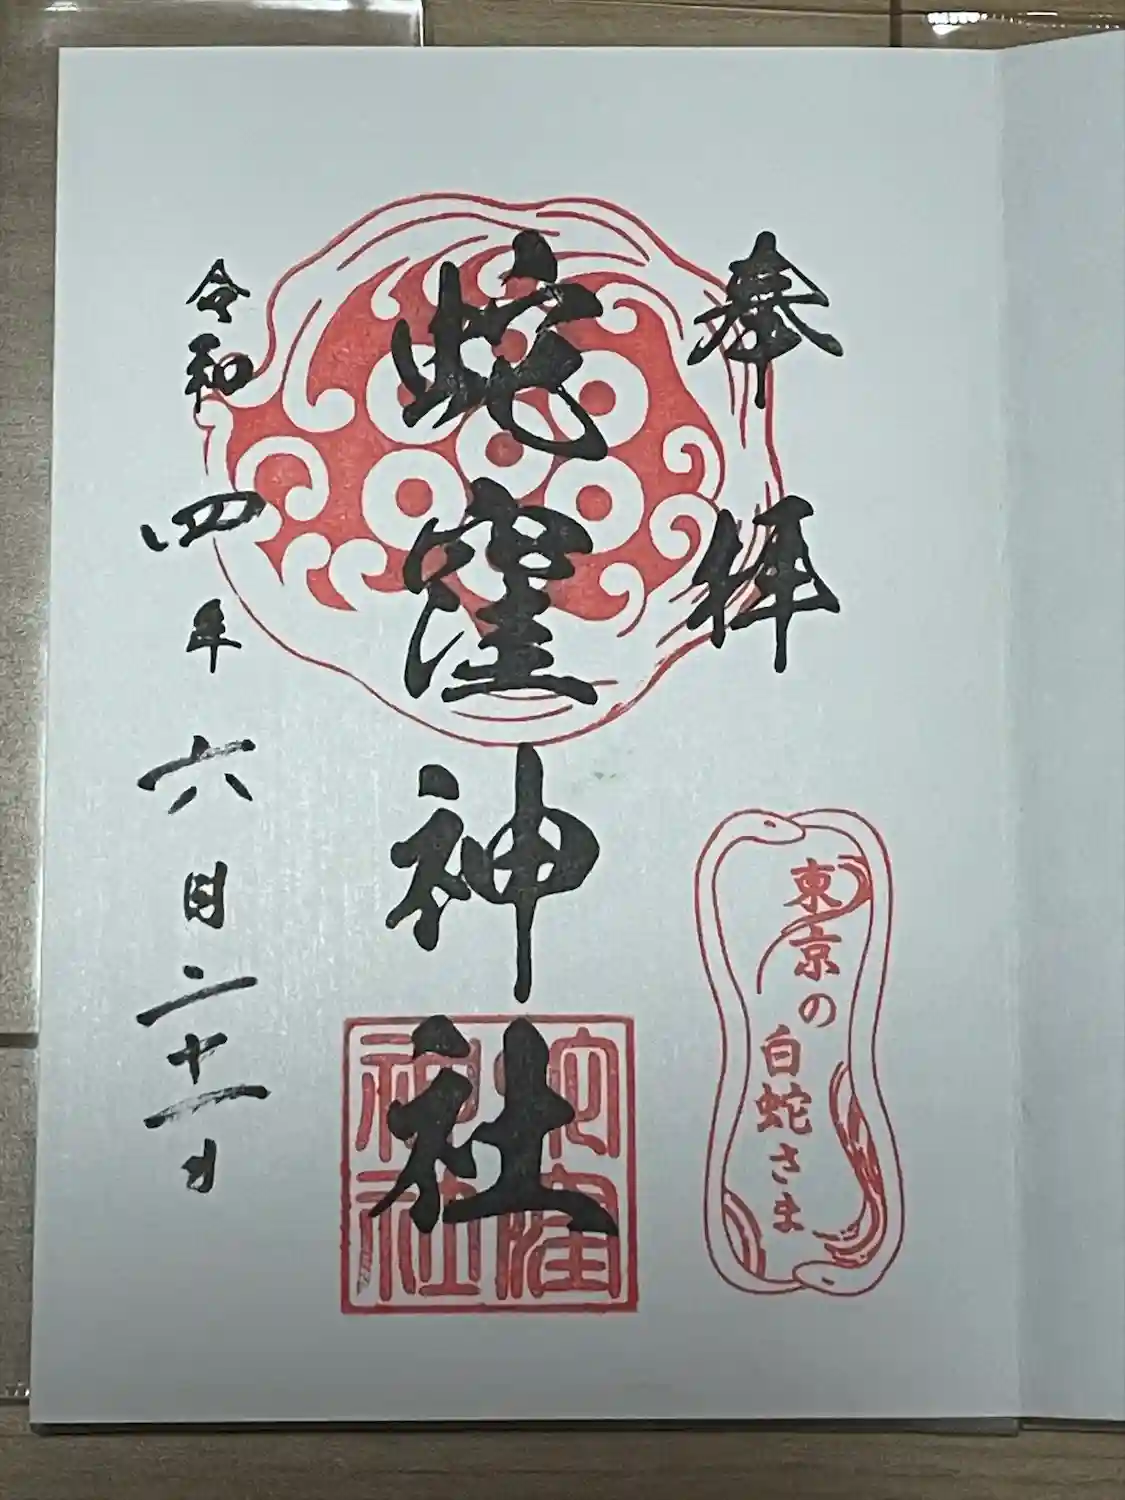 奉拝
蛇窪神社
令和四年六月二十一日
東京の
白蛇さま
蛇窪
神社